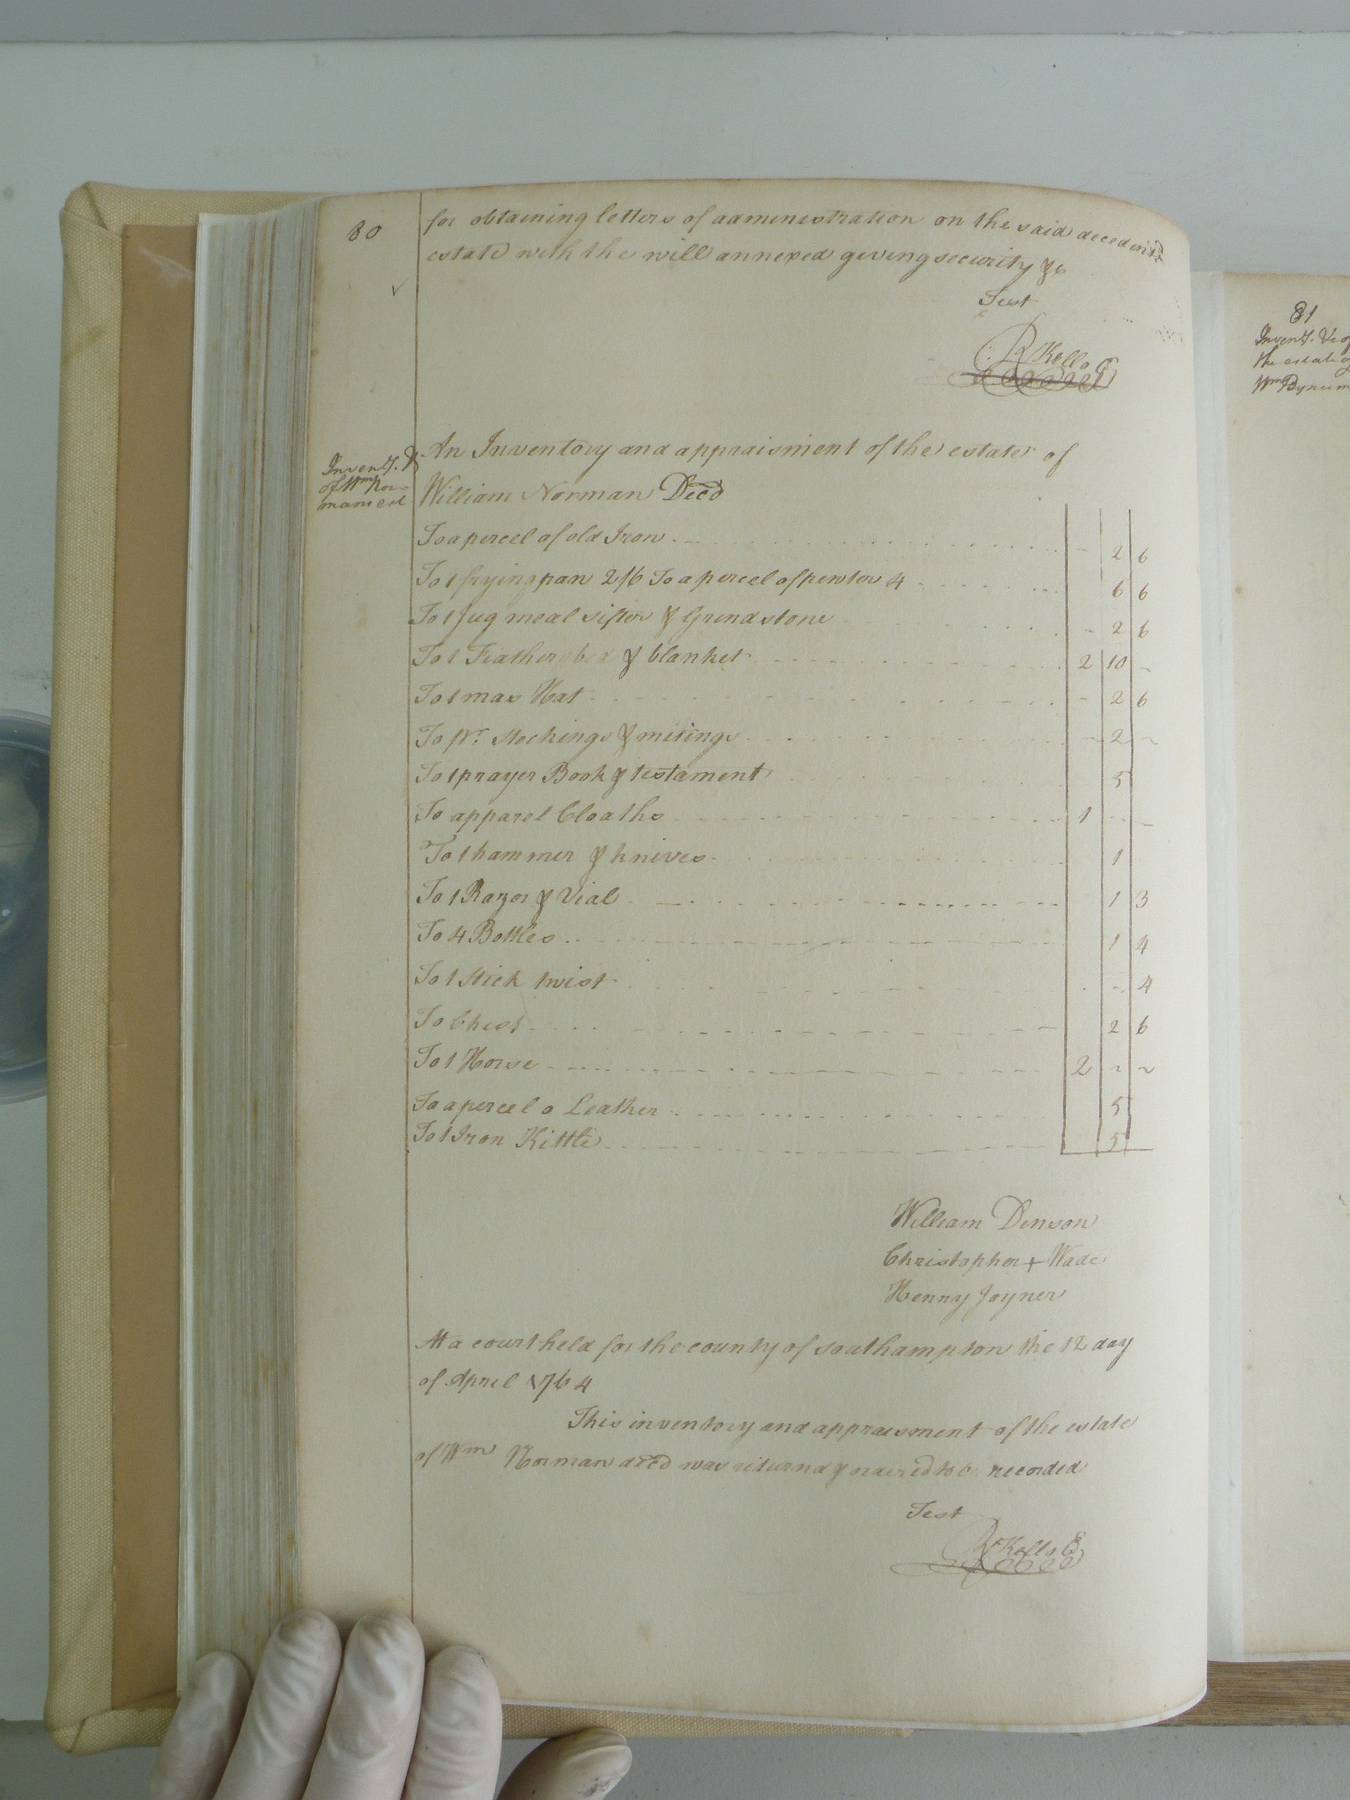 80
for obtaining letters of administration on the said decedents
estate with the will annexed giving security &c
Test
R Kello
Invent. &
of Wm Nor-
man
An Inventory and appraisment of the estate of
William Norman Decd
To a percel of old Iron - 2 6
To 1 frying pan 2/6 To a percel of pewter 4 6 6
To 1 Jug meal sifter & Grindstone - 2 6
To 1 Feather bed & blanket 2 10 -
To 1 mas Hat - 2 6
To pr. Stockings & - 2 -
To 1 prayer Book & testament 5
To apparel Cloaths 1 - -
To 1 hammer & knives 1
To 1 Razor & Vial 1 3
To 4 Bottles 1 4
To 1 Stick twist - - 4
To Chest 2 6
To 1 Horse 2 ~ ~
To a percel o Leather 5
To 1 Iron Kittle 5
William Denson
Christopher + Wade
Henny Joyner
At a court held for the county of Southampton the 12 day
of April 1764
This inventory and appraisment of the estate
of Wm Norman decd was returnd & ordered to be recorded
Test
R Kello
81
Invent. &c of
the estate of
Wm Bynum